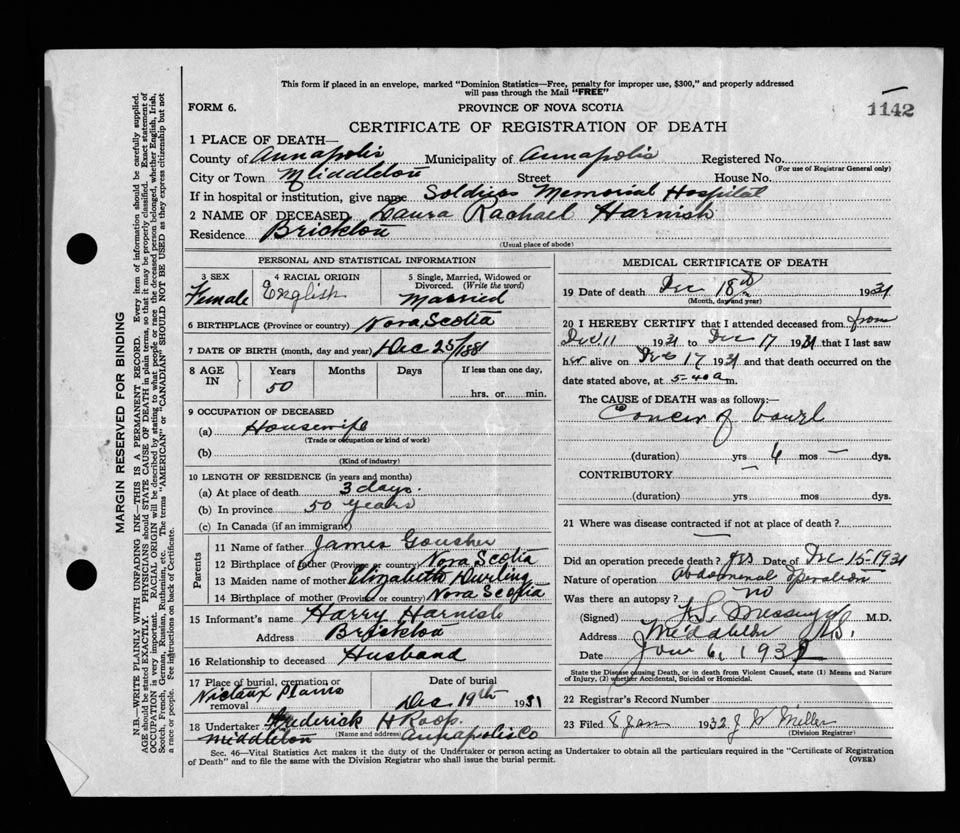 This form if placed in an envelope, marked "Dominion Statistics—Free, penalty for improper use, $300," and properly addressed
will pass through the Mail "FREE"
FORM 6. PROVINCE OF NOVA SCOTIA
1142
CERTIFICATE OF REGISTRATION OF DEATH
1 PLACE OF DEATH—
County of Annapolis Municipality of Annapolis Registered No.
(For use of Registrar General only)
City or Town Middleton Street House No.
If in hospital or institution, give name Soldiers Memorial Hospital
2 NAME OF DECEASED Laura Rachael Harnish
Residence Brickton
(Usual place of abode)
PERSONAL AND STATISTICAL INFORMATION
3 SEX 4 RACIAL ORIGIN 5 Single, Married, Widowed or
Divorced. (Write the word)
Female English Married
6 BIRTHPLACE (Province or country) Nova Scotia
7 DATE OF BIRTH (month, day and year) Dec 25/1881
8 AGE IN Years Months Days If less than one day,
50 hrs. or min.
9 OCCUPATION OF DECEASED
(a) Housewife
(Trade or occupation or kind of work)
(b)
(Kind of industry)
10 LENGTH OF RESIDENCE (in years and months)
(a) At place of death 3 days.
(b) In province 50 years
(c) In Canada (if an immigrant)
Parents
11 Name of father James
12 Birthplace of father (Province or country) Nova Scotia
13 Maiden name of mother Elizabeth Durling
14 Birthplace of mother (Province or country) Nova Scotia
15 Informant's name Harry Harnish
Address Brickton
16 Relationship to deceased Husband
17 Place of burial, cremation or
removal Nictaux Plains
Date of burial
Dec 19th 1931
18 Undertaker Frederick H Roop.
(Name and address)
Middleton Annapolis Co
MEDICAL CERTIFICATE OF DEATH
19 Date of death Dec 18th 1931
(Month, day and year)
20 I HEREBY CERTIFY that I attended deceased from from
Dec 11 1931 to Dec 17 1931 that I last saw
her alive on Dec 17 1931 and that death occurred on the
date stated above, at 5-40 a m.
The CAUSE of DEATH was as follows:—
Cancer of bowel
(duration) yrs 6 mos — dys.
CONTRIBUTORY —
(duration) yrs. mos. dys.
21 Where was disease contracted if not at place of death?
Did an operation precede death? yes Date of Dec 15-1931
Nature of operation Abdominal operation
Was there an autopsy? no
(Signed) Messenger M.D.
Address Middleton N.S.
Date Jan 6, 1932
State the Disease causing Death, or in death from Violent Causes, state (1) Means and Nature
of Injury, (2) whether Accidental, Suicidal or Homicidal.
22 Registrar's Record Number
23 Filed 8 Jan 1932 J W Miller
(Division Registrar)
Sec. 46—Vital Statistics Act makes it the duty of the Undertaker or person acting as Undertaker to obtain all the particulars required in the "Certificate of Registration
of Death" and to file the same with the Division Registrar who shall issue the burial permit.
(OVER)
MARGIN RESERVED FOR BINDING
N.B.—WRITE PLAINLY WITH UNFADING INK—THIS IS A PERMANENT RECORD. Every item of information should be carefully supplied.
AGE should be stated EXACTLY. PHYSICIANS should STATE CAUSE OF DEATH in plain terms, so that it may be properly classified. Exact statement of
OCCUPATION is very important. RACIAL ORIGIN will be described by stating to what people or race the deceased person belonged, whether English, Irish,
Scotch, French, German, Russian, Ruthenian, etc. The terms "AMERICAN" or "CANADIAN" SHOULD NOT BE USED as they express citizenship but not
a race or people. See instructions on back of Certificate.